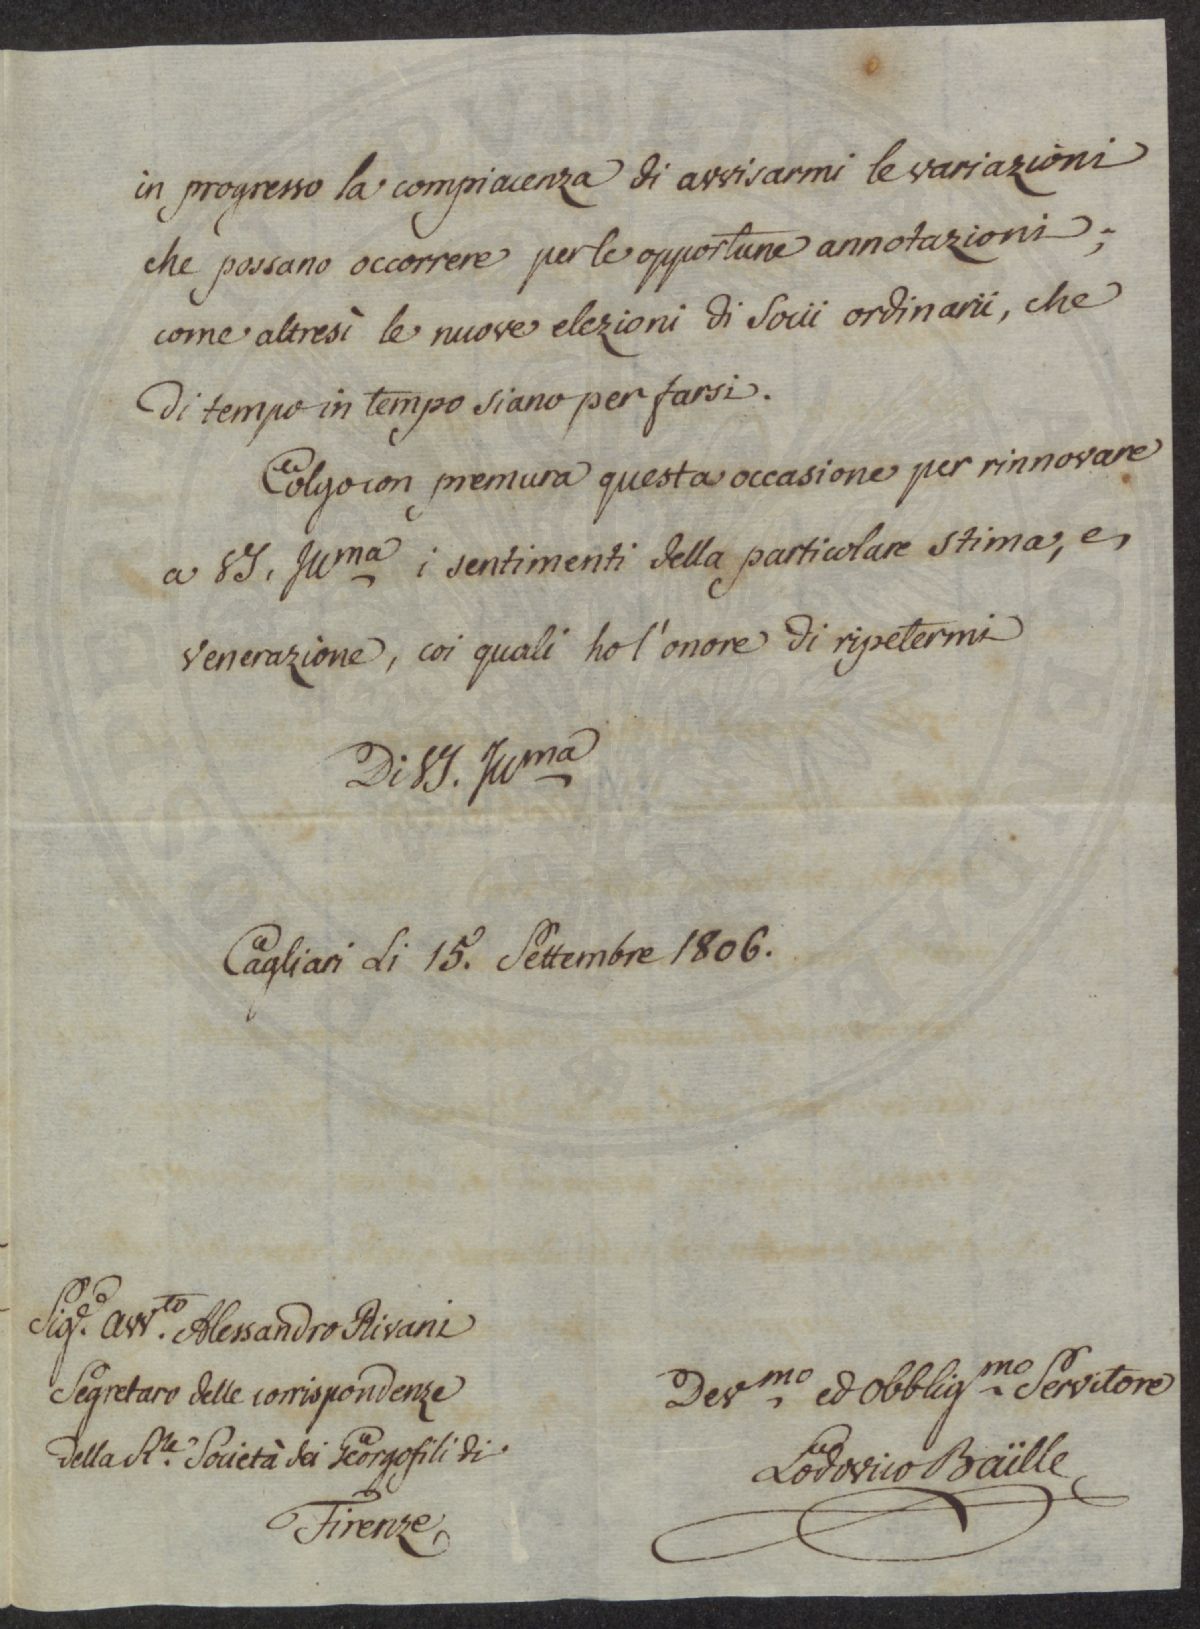 in progresso la compiacenza di avvisarmi le variazioni
che possano occorrere per le opportune annotazioni;
come altresì le nuove elezioni di Socii ordinarii, che
di tempo in tempo siano per farsi.
Colgo con premura questa occasione per rinnovare
a VS. Illma i sentimenti della particolare stima, e
venerazione, coi quali ho l'onore di ripetermi
Di VS. Illma
Cagliari li 15. Settembre 1806.
Sigr. Avvto. Alessandro Rivani
Segretaro delle corrispondenze
della Rle. Società dei Georgofili di
Firenze
Devmo ed Obbligmo Servitore
Lodovico Baïlle